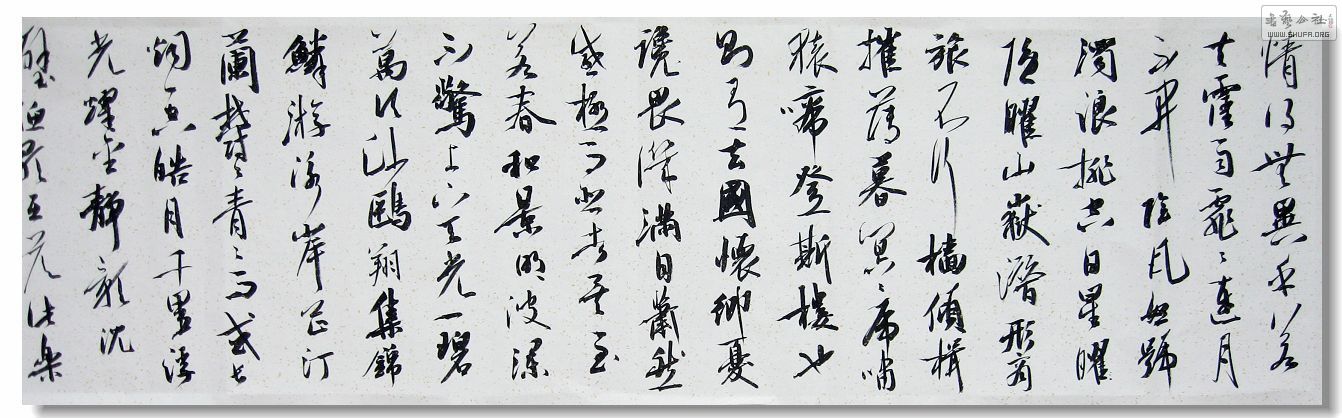 書藝公社
WWW.SHUFA.ORG
情得無異乎若
夫霪雨霏々連月
不開陰風怒號
濁浪排空日星曜
隱曜山嶽潛形商
旅不行檣傾楫
摧薄暮冥々虎嘯
猿啼登斯樓也
則有去國懷鄉憂
讒畏譏滿目蕭然
感極而悲者矣至
若春和景明波瀾
不驚上下天光一碧
萬頃沙鷗翔集錦
鱗游泳岸芷汀
蘭鬱々青々而或長
煙一空皓月千里浮
光耀金靜影沈
璧漁歌互答此樂